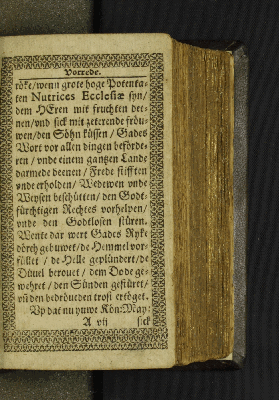 Vorrede.
röke/wenn grote hoge Potenta-
ten Nutrices Ecclesiæ syn/
dem HEren mit fruchten dee-
nen/vnd sick mit zeterende fröu-
wen/den Söhn küssen/Gades
Wort vor allen dingen beförde-
ren/vnde einem gantzen Lande
darmede deenen/Frede stifften
vnde erholden/Wedewen vnde
Weysen beschütten/den Godt-
fürchtigen Rechtes vorhelpen/
vnde den Godtlosen stüren.
Wente dar wert Gades Ryke
dörch gebuwet/de Hemmel vor-
füllet / de Helle geplündert/de
Düuel berouet / dem Dode ge-
wehret / den Sünden gestüret/
vñ den bedröueden trost ertöget.
Vp dat nu yuwe Kön: May:
A vij
sick